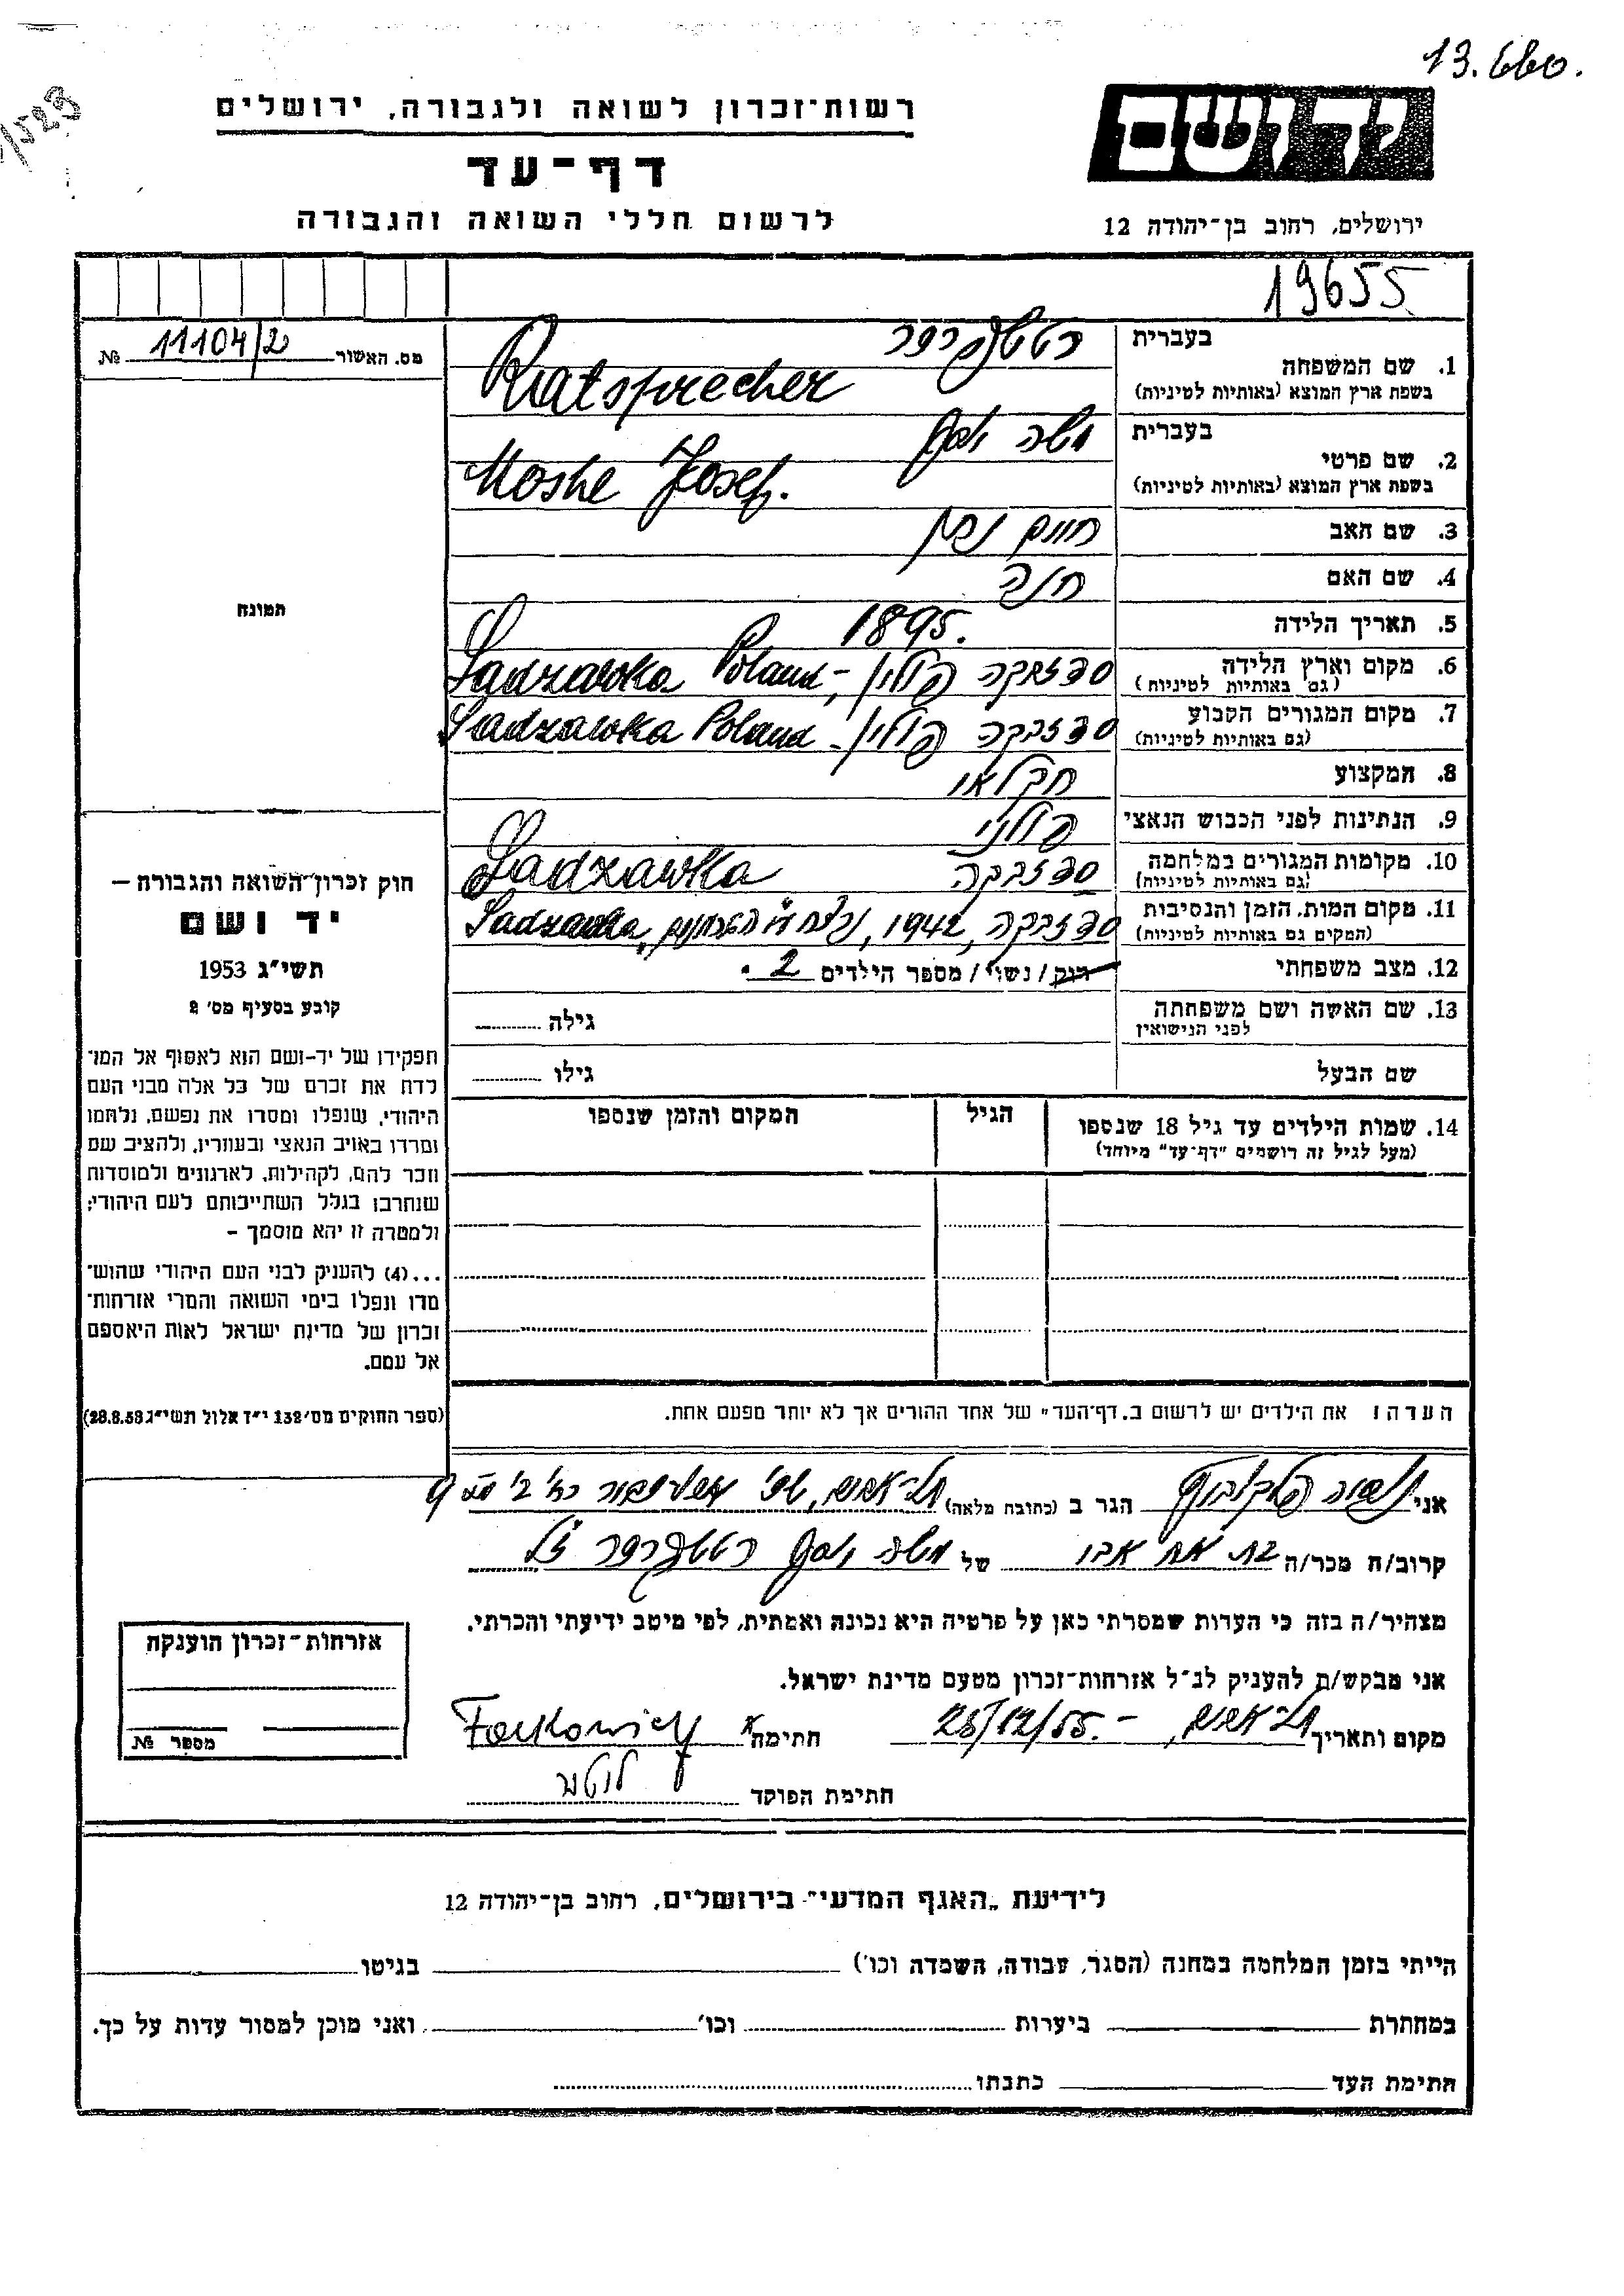 13.660.
רשות־זכרון לשואה ולגבורה, ירושלים
יד ושם
דף־עד
לרשום חללי השואה והגבורה
ירושלים, רחוב בן־יהודה 12
19655
מס. האשור 11104/2 №
בעברית
1. שם המשפחה
בשפת ארץ המוצא (באותיות לטיניות) Ratsprecher
בעברית משה יוסף
2. שם פרטי
בשפת ארץ המוצא (באותיות לטיניות) Moshe Josef.
3. שם האב חיים
4. שם האם חנה
5. תאריך הלידה 1895.
6. מקום וארץ הלידה סדזבקה פולין, Sadzawka Poland-
(גם באותיות לטיניות)
7. מקום המגורים הקבוע סדזבקה פולין - Sadzawka Poland
(גם באותיות לטיניות)
8. המקצוע חקלאי
9. הנתינות לפני הכבוש הנאצי פולני
10. מקומות המגורים במלחמה סדזבקה Sadzawka
(גם באותיות לטיניות)
11. מקום המות, הזמן והנסיבות סדזבקה, 1942, נרצח ע"י הגרמנים, Sadzawka
(המקום גם באותיות לטיניות)
12. מצב משפחתי רוק / נשוי / מספר הילדים 2.
13. שם האשה ושם משפחתה
לפני הנישואין
גילה
שם הבעל גילו
14. שמות הילדים עד גיל 18 שנספו הגיל המקום והזמן שנספו
(מעל לגיל זה רושמים "דף־עד" מיוחד)
תמונה
חוק זכרון השואה והגבורה –
יד ושם
תשי"ג 1953
קובע בסעיף מס' 2
תפקידו של יד-ושם הוא לאסוף אל המו־
לדת את זכרם של כל אלה מבני העם
היהודי, שנפלו ומסרו את נפשם, נלחמו
ומרדו באויב הנאצי ובעוזריו, ולהציב שם
וזכר להם, לקהילות, לארגונים ולמוסדות
שנחרבו בגלל השתייכותם לעם היהודי;
ולמטרה זו יהא מוסמך –
...(4) להעניק לבני העם היהודי שהוש־
מדו ונפלו בימי השואה והמרי אזרחות־
זכרון של מדינת ישראל לאות היאספם
אל עמם.
(ספר החוקים מס' 132 י"ז אלול תשי"ג 28.8.53)
הערה: את הילדים יש לרשום ב„דף־העד" של אחד ההורים אך לא יותר מפעם אחת.
אני הגר ב (כתובת מלאה)
קרוב/ה מכר/ה בת אח אביו של משה יוסף ז"ל
מצהיר/ה בזה כי העדות שמסרתי כאן על פרטיה היא נכונה ואמתית, לפי מיטב ידיעתי והכרתי.
אני מבקש/ת להעניק לנ"ל אזרחות־זכרון מטעם מדינת ישראל.
מקום ותאריך 25/12/55. - חתימה
חתימת הפוקד
אזרחות־זכרון הוענקה
מספר №
לידיעת „האגף המדעי" בירושלים, רחוב בן־יהודה 12
הייתי בזמן המלחמה במחנה (הסגר, עבודה, השמדה וכו') בגיטו
במחתרת ביערות וכו' ואני מוכן למסור עדות על כך.
חתימת העד כתבתו